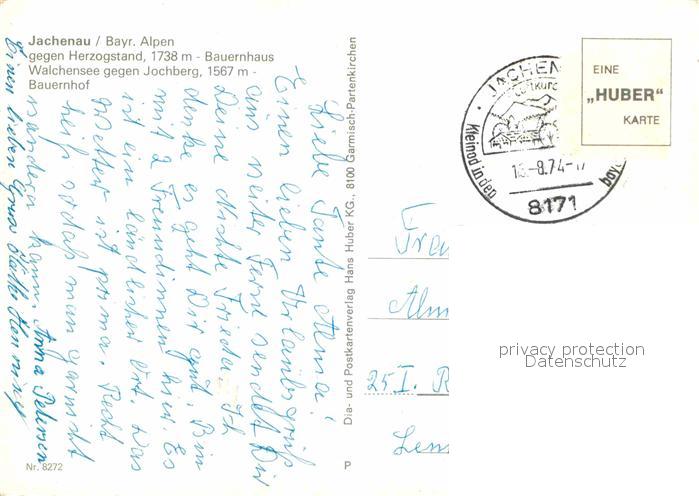 Jachenau / Bayr. Alpen
gegen Herzogstand, 1738 m - Bauernhaus
Walchensee gegen Jochberg, 1567 m -
Bauernhof
Liebe Tante Alma!
Einen lieben Urlaubsgruß
aus weiter Ferne sendet Dir
Deine Nichte Frieda. Ich
denke es geht Dir gut. Bin
mit 2 Freundinnen hier. Es
ist ein ländlicher Ort. Das
Wetter ist prima. Recht
heiß sodaß man gar nicht
wandern kann. Anna Petersen
Einen lieben Gruß
Nr. 8272
P
Dia- und Postkartenverlag Hans Huber KG., 8100 Garmisch-Partenkirchen
JACHEN
Luftkuro
Kleinod in den
bay
-8.74-17
8171
EINE
„HUBER"
KARTE
Frau
Alm
25 I. R
Len
privacy protection
Datenschutz